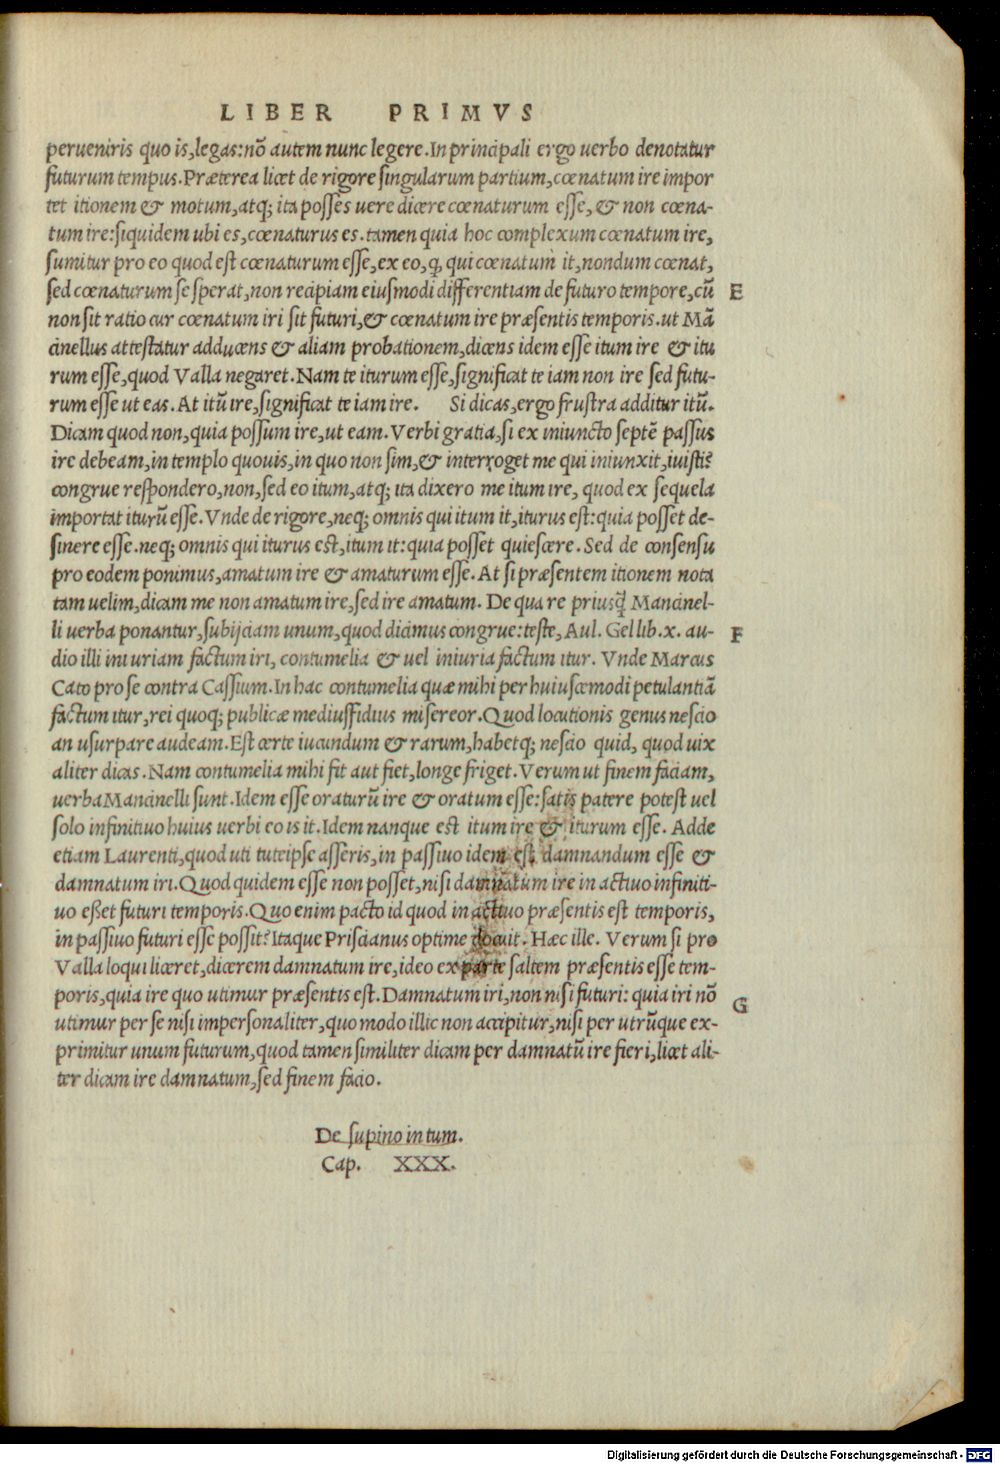 LIBER PRIMVS
perueniris quo is,legas:nõ autem nunc legere.In principali ergo uerbo denotatur
futurum tempus.Præterea licet de rigore singularum partium,cœnatum ire impor
tet itionem & motum,atq; ita posses uere dicere cœnaturum esse,& non cœna-
tum ire:siquidem ubi es,cœnaturus es.tamen quia hoc complexum cœnatum ire,
sumitur pro eo quod est cœnaturum esse,ex eo,q, qui cœnatum it,nondum cœnat,
sed cœnaturum se sperat,non recipiam eiusmodi differentiam de futuro tempore,cũ
E
non sit ratio cur cœnatum iri sit futuri,& cœnatum ire præsentis temporis.ut Mã
cinellus attestatur adducens & aliam probationem,dicens idem esse itum ire & itu
rum esse,quod Valla negaret.Nam te iturum esse,significat te iam non ire sed futu-
rum esse ut eas.At itũ ire,significat te iam ire. Si dicas,ergo frustra additur itũ.
Dicam quod non,quia possum ire,ut eam.Verbi gratia,si ex iniuncto septẽ passus
ire debeam,in templo quouis,in quo non sim,& interroget me qui iniunxit,iuisti?
congrue respondero,non,sed eo itum,atq; ita dixero me itum ire, quod ex sequela
importat iturũ esse.Vnde de rigore,neq; omnis qui itum it,iturus est:quia posset de-
sinere esse.neq; omnis qui iturus est,itum it:quia posset quiescere.Sed de consensu
pro eodem ponimus,amatum ire & amaturum esse.At si præsentem itionem nota
tam uelim,dicam me non amatum ire,sed ire amatum. De qua re priusq̃ Mancinel-
li uerba ponantur,subijciam unum,quod dicimus congrue:teste,Aul.Gel lib.x.au-
F
dio illi iniuriam factum iri, contumelia & uel iniuria factum itur. Vnde Marcus
Cato pro se contra Cassium.In hac contumelia quæ mihi per huiuscemodi petulantiã
factum itur,rei quoq; publicæ mediusfidius misereor.Quod locutionis genus nescio
an usurpare audeam.Est certe iucundum & rarum,habetq; nescio quid, quod uix
aliter dicas.Nam contumelia mihi fit aut fiet,longe friget.Verum ut finem faciam,
uerba Mancinelli sunt.Idem esse oraturũ ire & oratum esse:satis patere potest uel
solo infinitiuo huius uerbi eo is it.Idem nanque est itum ire & iturum esse. Adde
etiam Laurenti,quod uti tuteipse asseris,in passiuo idem est damnandum esse &
damnatum iri.Quod quidem esse non posset,nisi damnatum ire in actiuo infiniti-
uo esset futuri temporis.Quo enim pacto id quod in actiuo præsentis est temporis,
in passiuo futuri esse possit?Itaque Priscianus optime docuit. Hæc ille. Verum si pro
Valla loqui liceret,dicerem damnatum ire,ideo ex parte saltem præsentis esse tem-
poris,quia ire quo utimur præsentis est.Damnatum iri,non nisi futuri: quia iri nõ
G
utimur per se nisi impersonaliter,quo modo illic non accipitur,nisi per utrũque ex-
primitur unum futurum,quod tamen similiter dicam per damnatũ ire fieri,licet ali-
ter dicam ire damnatum,sed finem facio.
De supino in tum.
Cap. XXX.
Digitalisierung gefördert durch die Deutsche Forschungsgemeinschaft - DFG